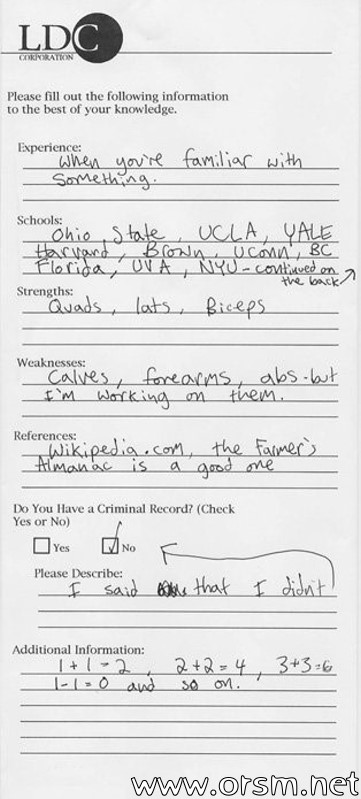 LDC
CORPORATION
Please fill out the following information
to the best of your knowledge.
Experience:
When you're familiar with
something.
Schools:
Ohio, State, UCLA, YALE
Harvard, Brown, UConn, BC
Florida, UVA, NYU - continued on
the back
Strengths:
Quads, lats, Biceps
Weaknesses:
Calves, forearms, abs - but
I'm working on them.
References:
Wikipedia.com, the Farmer's
Almanac is a good one
Do You Have a Criminal Record? (Check
Yes or No)
Yes No
Please Describe:
I said that I didn't
Additional Information:
1+1=2, 2+2=4, 3+3=6
1-1=0 and so on.
www.orsm.net